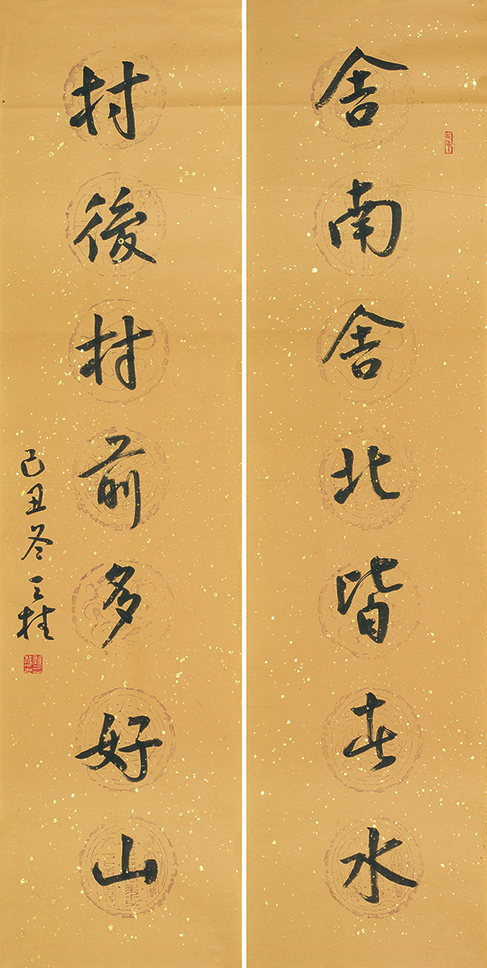 舍南舍北皆春水
村後村前多好山
己丑冬三桂